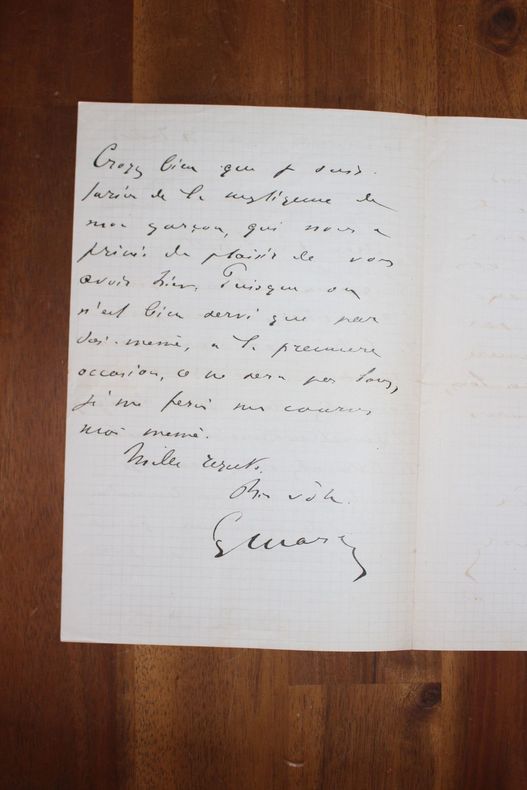 Croyez bien que je suis
furieux de la negligence de
mon garçon, qui nous a
privés du plaisir de vous
avoir hier. Puisque on
n'est bien servi que par
soi-même, a la premiere
occasion, ce ne sera pas long,
je me ferai mes courses
moi meme.
Mille regrets.